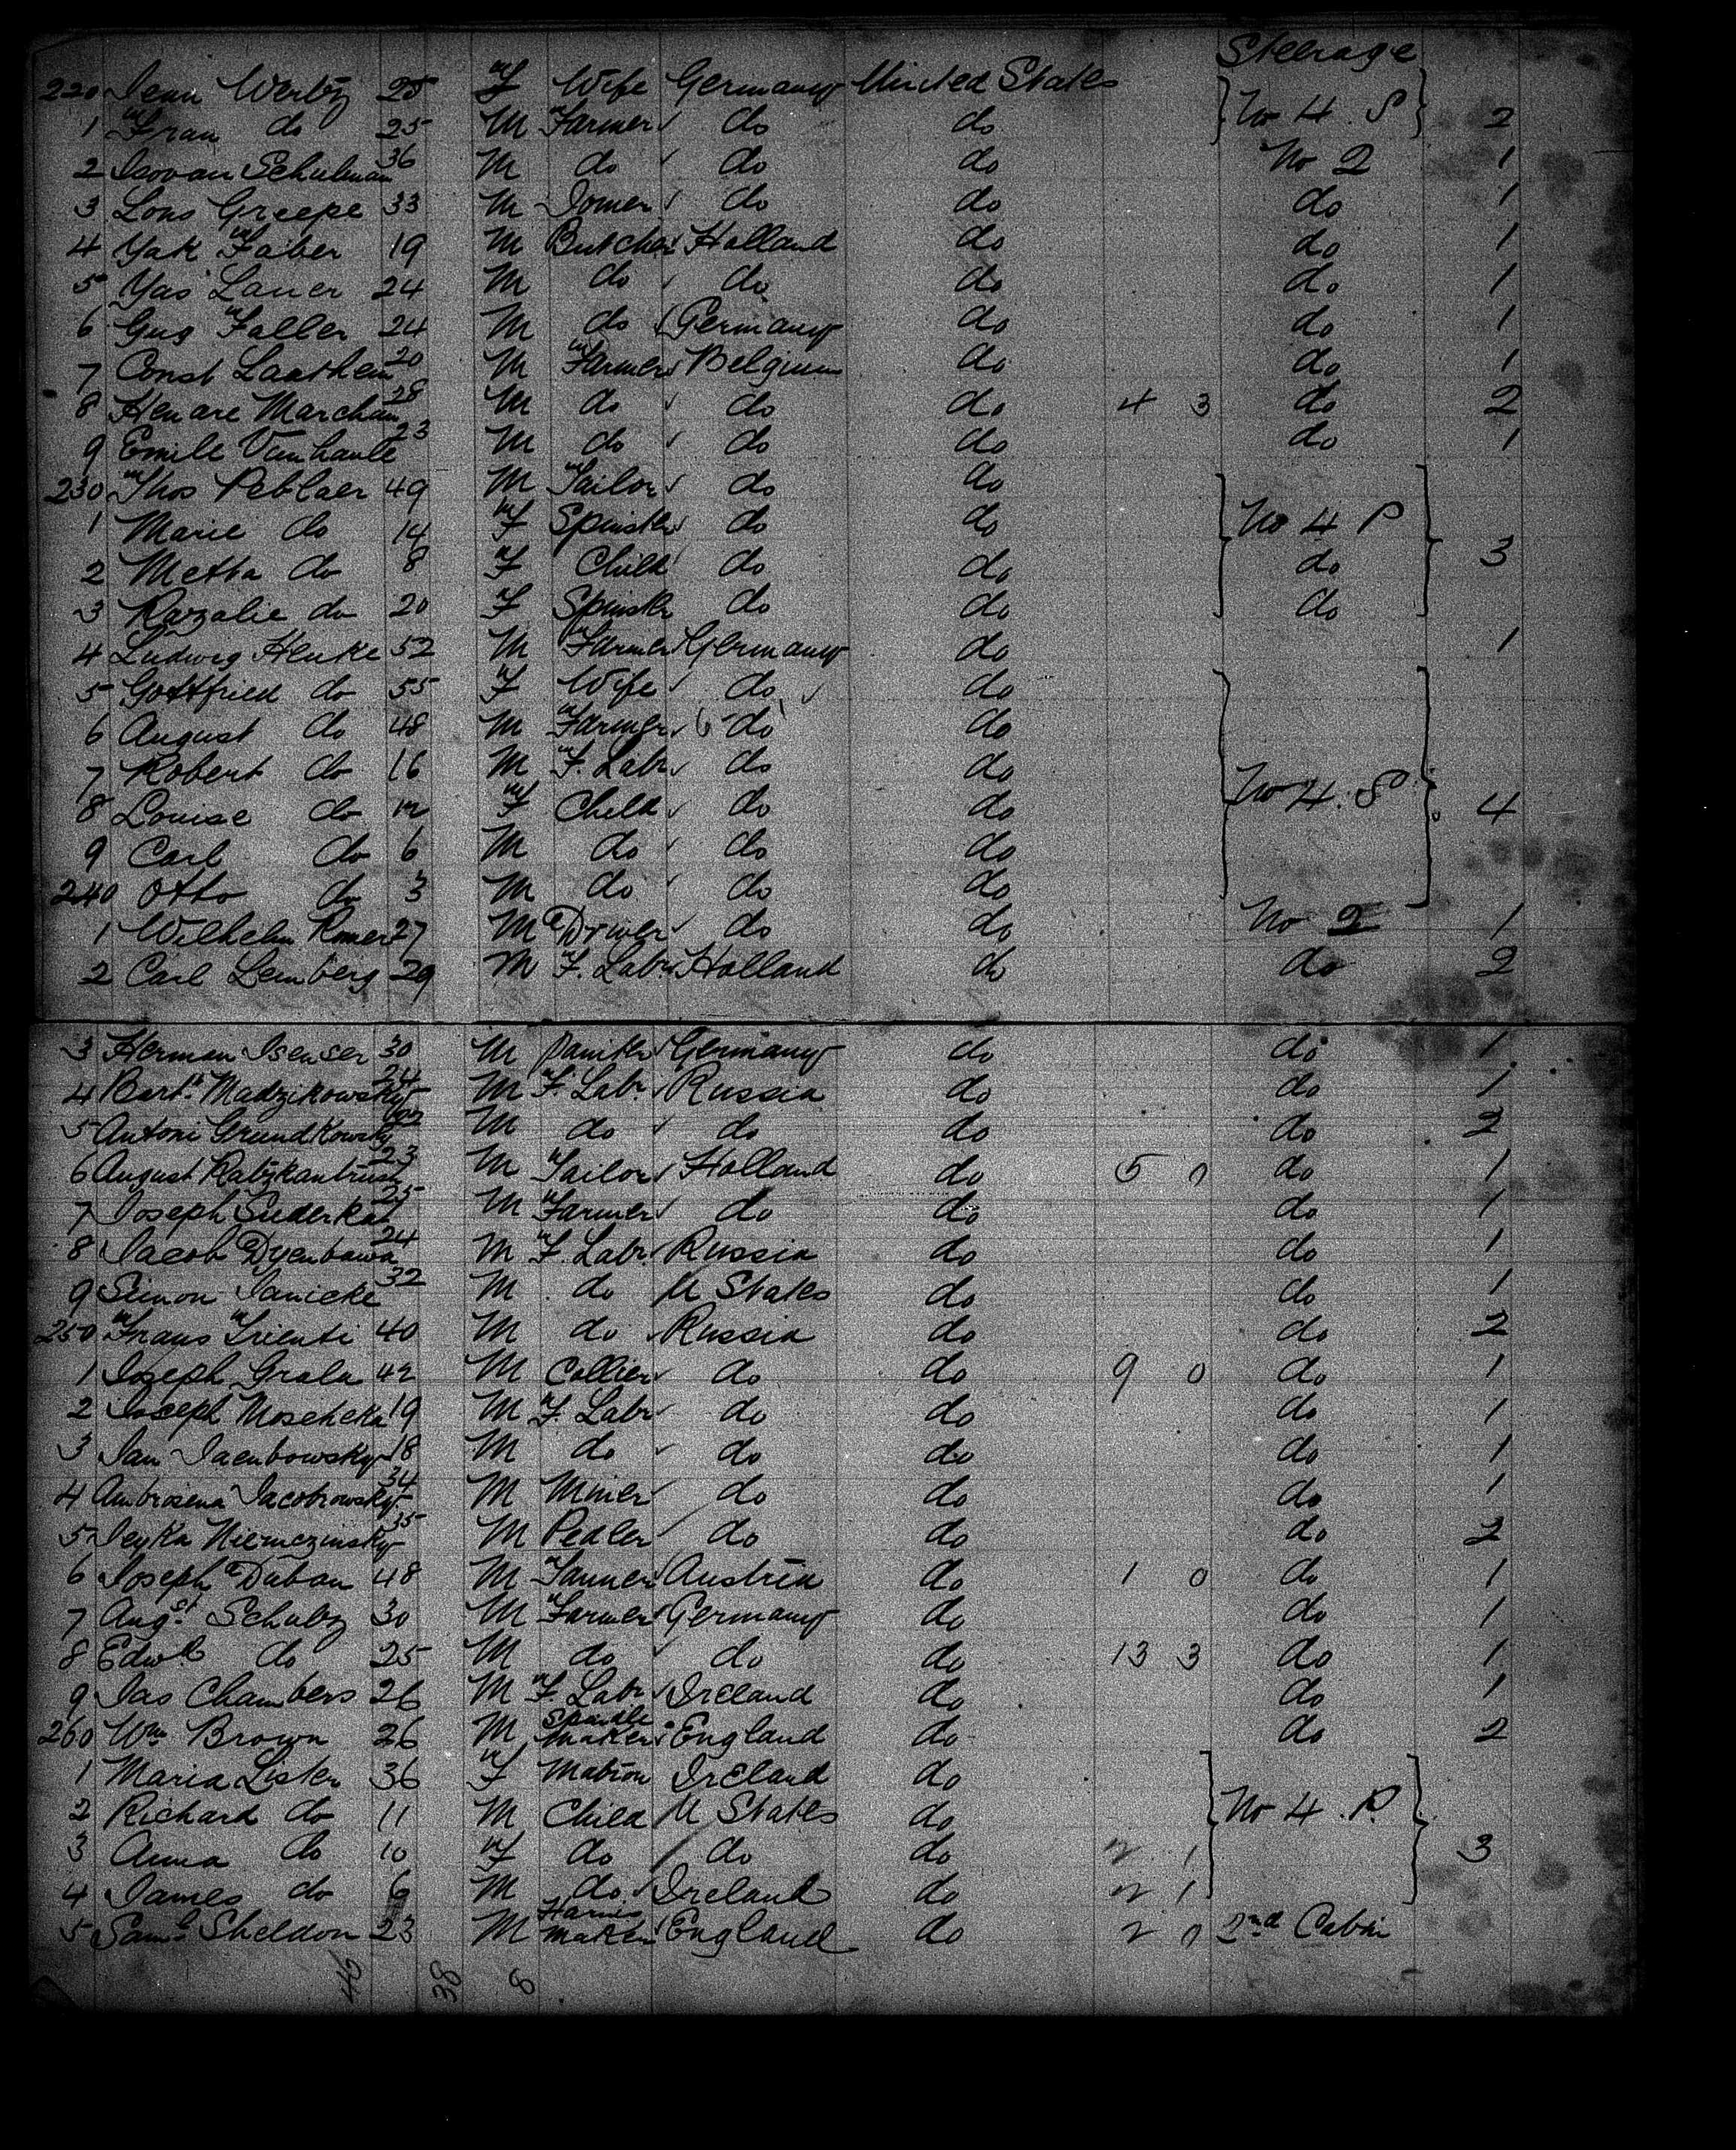 Steerage
220 Jenu Werby 25 F Wife Germany United States
1 Fran do 25 M Farmer do do No 4. S 2
2 Schulman 36 M do do do No 2 1
3 Lons Greepe 33 M Joiner do do do 1
4 Yak Faber 19 M Butcher Holland do do 1
5 Yas Lauer 24 M do do do do 1
6 Gus Faller 24 M do Germany do do 1
7 Const Laathem 20 M Farmer Belgium do do 1
8 Henare Marchan 28 M do do do 4 3 do 2
9 Emile Vanhaute 23 M do do do do 1
230 Thos Peblaer 49 M Tailor do do
1 Marie do 14 F Spinster do do No 4 P
2 Metha do 8 F Child do do do 3
3 Razalie do 20 F Spinstr do do do
4 Ludwig Henke 52 M Farmer Germany do 1
5 Gottfried do 55 F Wife do do
6 August do 48 M Farmer do do
7 Robert do 16 M F. Labr do do
8 Louise do F Child do do No 4. S 4
9 Carl do 6 M do do do
240 Otto do 3 M do do do
1 Wilhelm Romer 27 M Driver do do No 2 1
2 Carl Lemberg 29 M F. Labr Holland do do 2
3 Herman Isenser 30 M Germany do do 1
4 Bart. Madzikowsky 24 M F. Labr. Russia do do 1
5 Antoni Grundkowsky M do do do do 2
6 August 23 M Tailor Holland do 5 0 do 1
7 Joseph Suderkat 25 M Farmer do do do 1
8 Jacob Dyenbawa 24 M F. Labr. Russia do do 1
9 Simon Janicke 32 M do U States do do 1
250 Frans Trienti 40 M do Russia do do 2
1 Joseph Grala 42 M Collier do do 9 0 do 1
2 Joseph Moscheka 19 M F. Labr do do do 1
3 Jan Jacubowsky 18 M do do do do 1
4 Ambrosena Jacobrowsky 34 M Miner do do do 1
5 Niemczinsky 35 M Pedler do do do 2
6 Joseph Duban 48 M Tanner Austria do 1 0 do 1
7 Augst Schulz 30 M Farmer Germany do do 1
8 Edwd do 25 M do do do 13 3 do 1
9 Jas Chambers 26 M F. Labr Ireland do do 1
260 Wm Brown 26 M Spindle Maker England do do 2
1 Maria Lister 36 F Matron Ireland do
2 Richard do 11 M Child U States do No 4. P.
3 Anna do 10 F do do do 2 1 3
4 James do 6 M do Ireland do 2 1
5 Saml Sheldon 23 M Harnes Maker England do 2 0 2nd Cabin
46 38 8